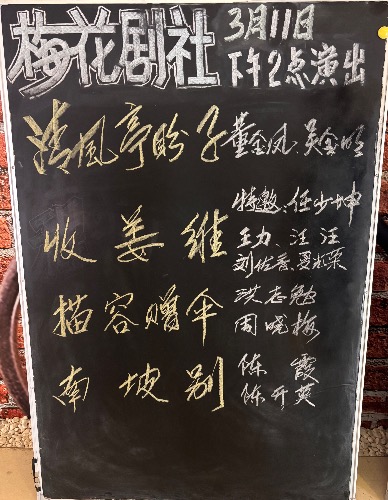 梅花剧社
3月11日
下午2点演出
清风亭盼子 董金凤、吴金明
特邀、任少坤
收姜维 王力、汪汪
刘佐香、
描容赠伞 洪志勉
周晓梅
南坡别 陈霞
陈开英